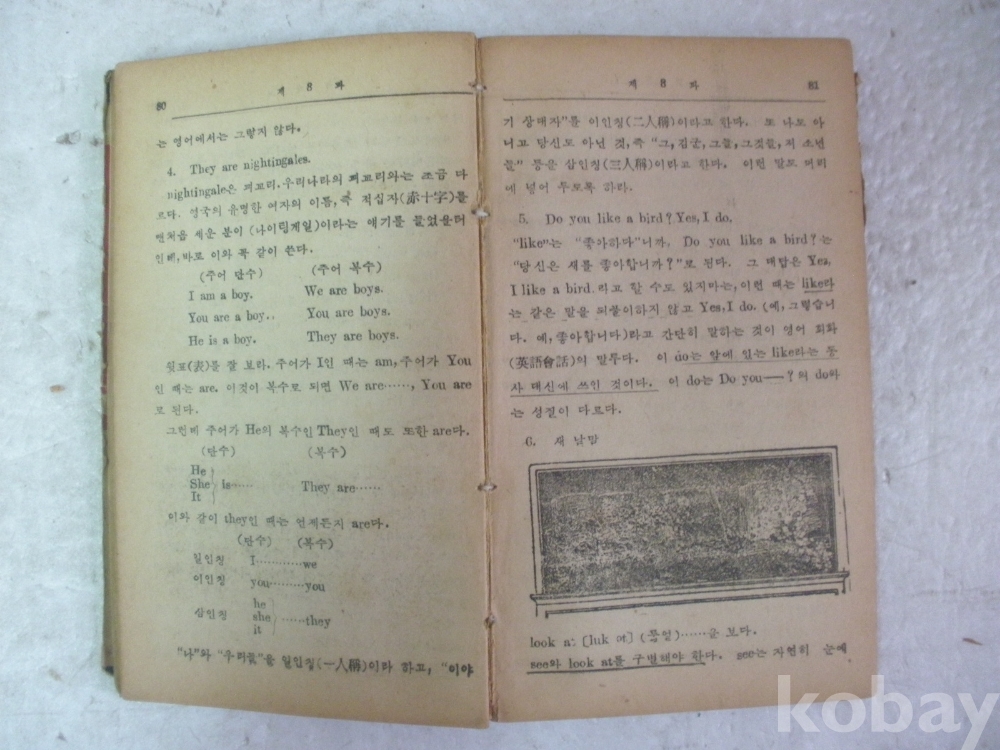 80
제 8 과
는 영어에서는 그렇지 않다.
4. They are nightingales.
nightingale은 꾀꼬리. 우리나라의 꾀꼬리와는 조금 다
르다. 영국의 유명한 여자의 이름, 즉 적십자(赤十字)를
맨처음 세운 분이 (나이팅게일)이라는 얘기를 들었을터
인데, 바로 이와 꼭 같이 쓴다.
(주어 단수) (주어 복수)
I am a boy. We are boys.
You are a boy.. You are boys.
He is a boy. They are boys.
윗표(表)를 잘 보라. 주어가 I인 때는 am, 주어가 You
인 때는 are. 이것이 복수로 되면 We are……, You are
로 된다.
그런데 주어가 He의 복수인 They인 때도 또한 are다.
(단수) (복수)
He
She is…… They are……
It
이와 같이 they인 때는 언제든지 are다.
(단수) (복수)
일인칭 I…………we
이인칭 you………you
he
삼인칭 she ……they
it
"나"와 "우리들"을 일인칭(一人稱)이라 하고, "이야
제 8 과
81
기 상대자"를 이인칭(二人稱)이라고 한다. 또 나도 아
니고 당신도 아닌 것, 즉 "그, 김군, 그들, 그것들, 저 소년
들" 등을 삼인칭(三人稱)이라고 한다. 이런 말도 머리
에 넣어 두도록 하라.
5. Do you like a bird? Yes, I do.
"like"는 "좋아하다"니까, Do you like a bird?는
"당신은 새를 좋아합니까?"로 된다. 그 대답은 Yes,
I like a bird.라고 할 수도 있지마는, 이런 때는 like라
는 같은 말을 되풀이하지 않고 Yes, I do. (예, 그렇습니
다. 예, 좋아합니다)라고 간단히 말하는 것이 영어 회화
(英語會話)의 말투다. 이 do는 앞에 있는 like라는 동
사 대신에 쓰인 것이다. 이 do는 Do you——?의 do와
는 성질이 다르다.
6. 새 낱말
look at [luk ət] ……을 보다.
see와 look at를 구별해야 한다. see는 자연히 눈에
kobay